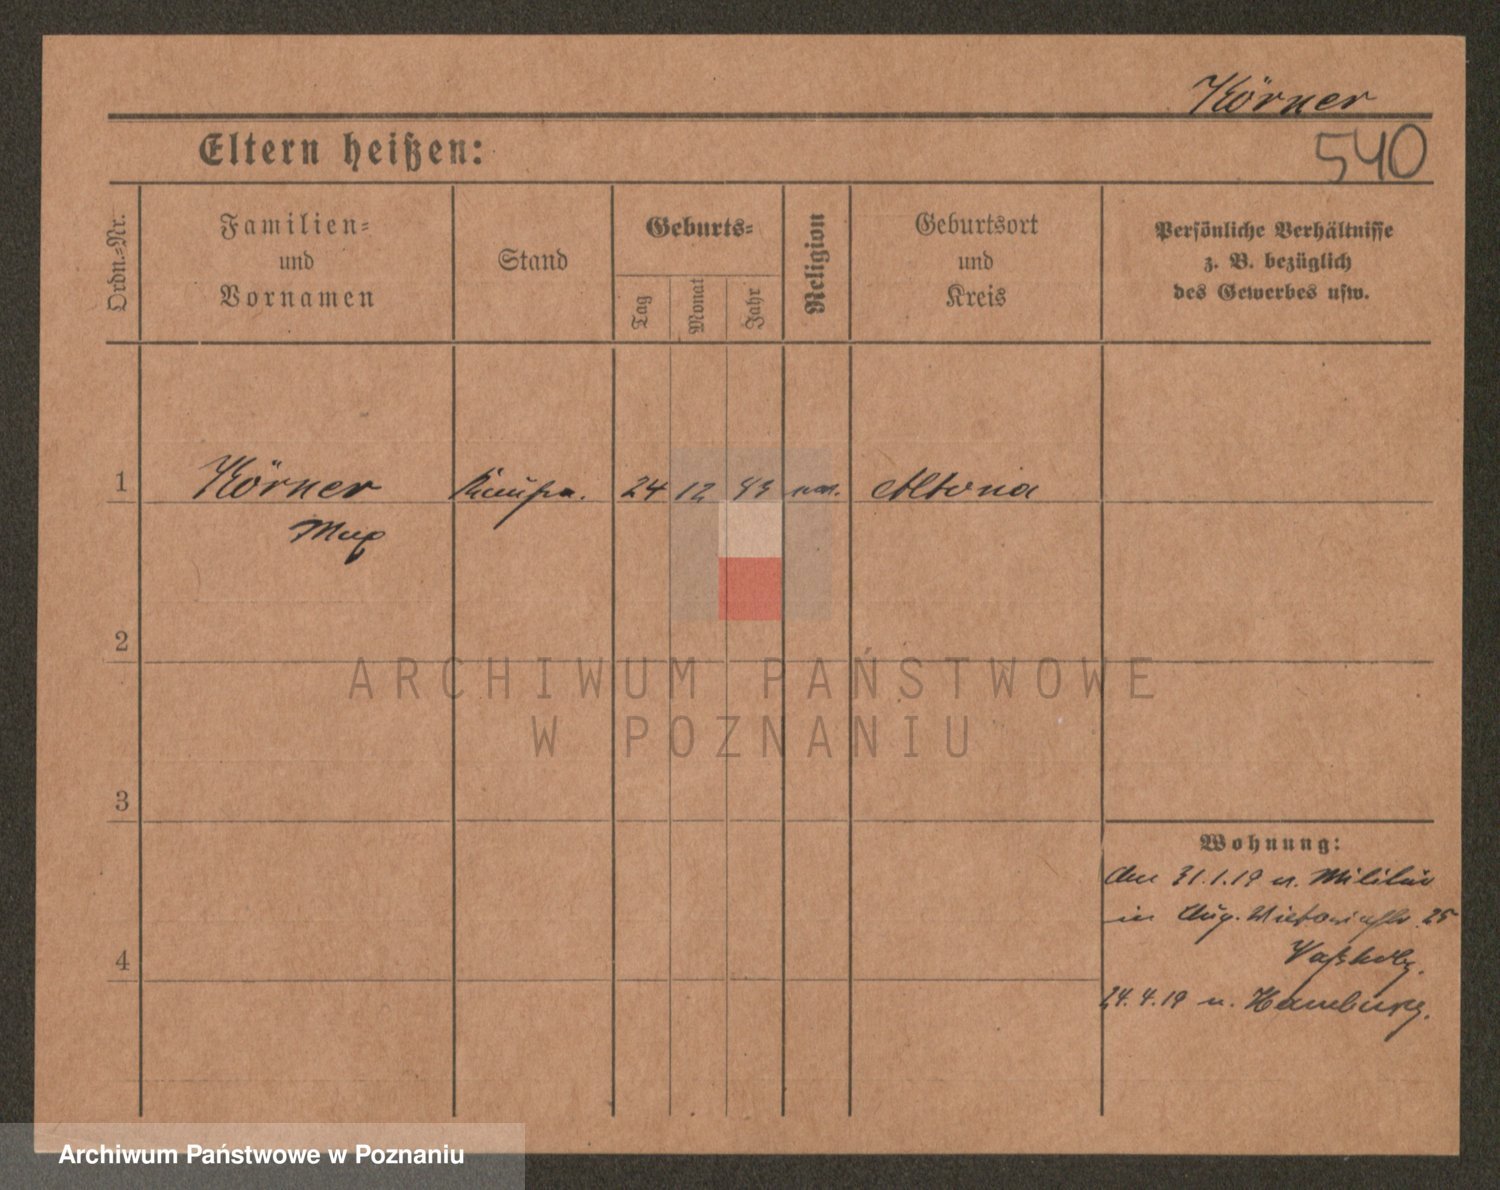 Körner
540
Eltern heißen:
Ordn.-Nr.
Familien-
und
Vornamen
Stand
Geburts-
Tag
Monat
Jahr
Religion
Geburtsort
und
Kreis
Persönliche Verhältnisse
z. B. bezüglich
des Gewerbes usw.
1
Körner
Max
24 12
Altona
2
ARCHIWUM PAŃSTWOWE
W POZNANIU
3
Wohnung:
31.1.19 Militär
in Aug. Victoriastr. 25
4
24.4.19 n. Hamburg.
Archiwum Państwowe w Poznaniu